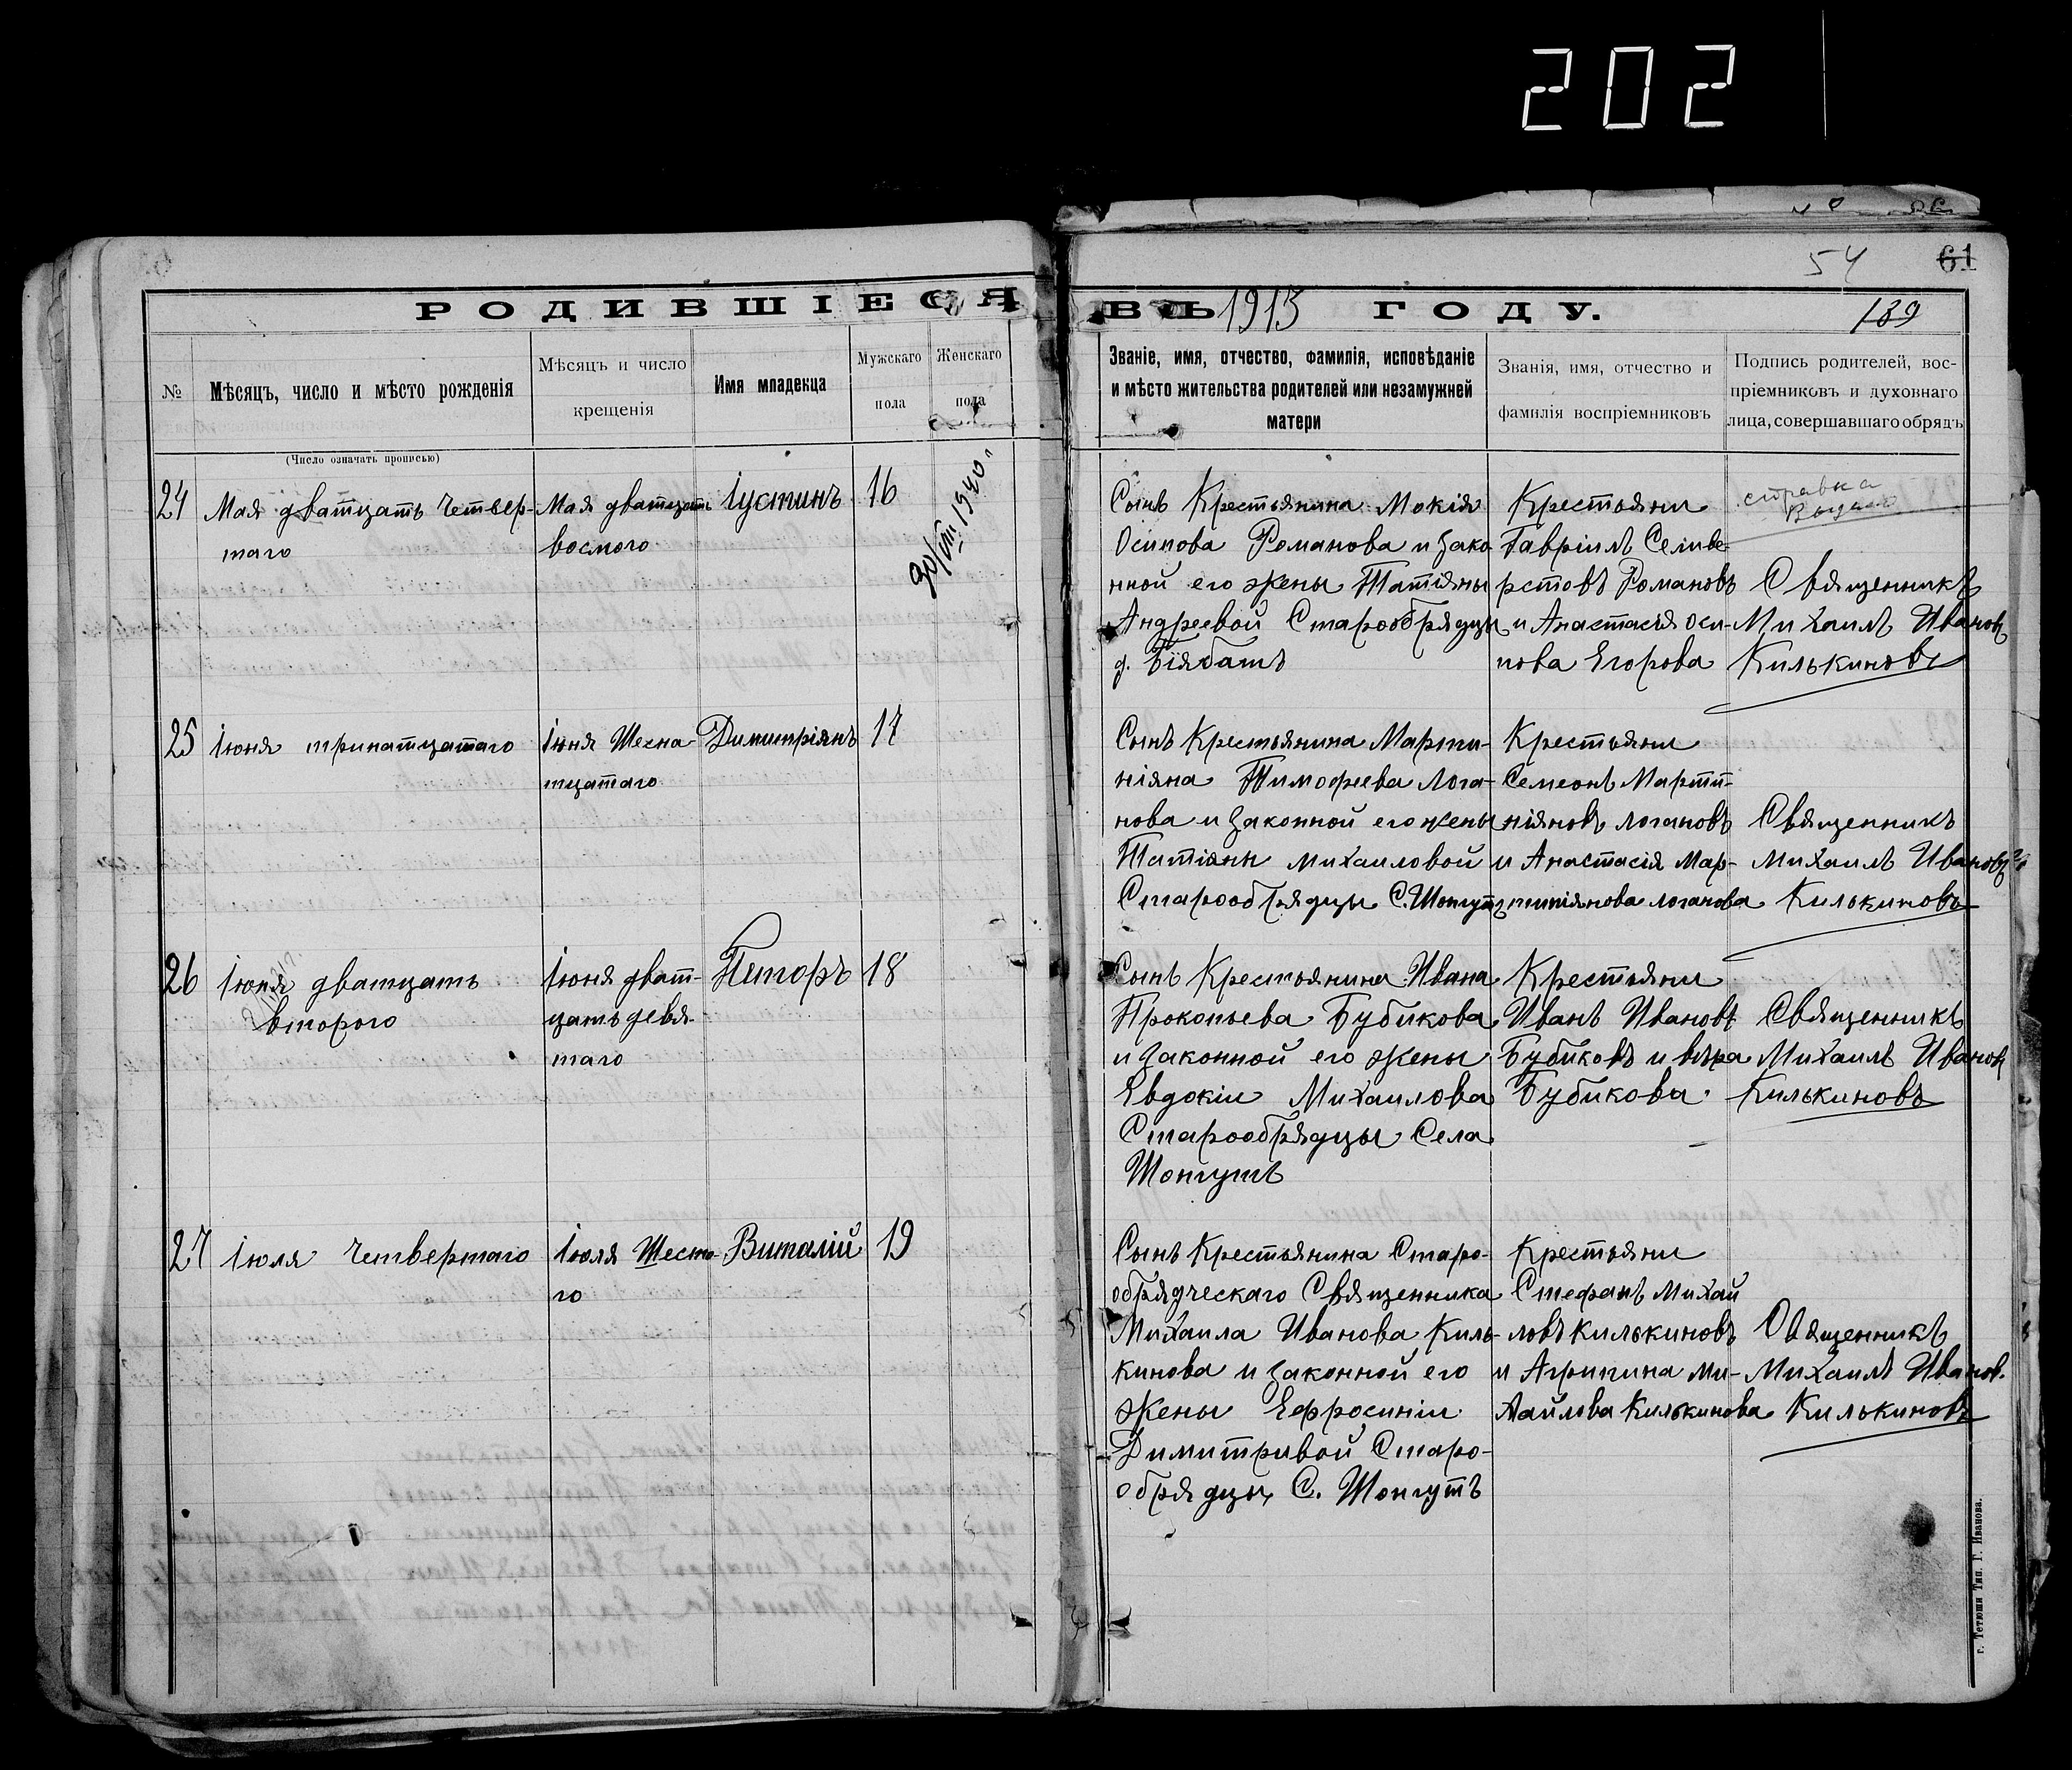 202
54
61
РОДИВШІЕСЯ ВЪ 1913 ГОДУ.
139
№
Мѣсяцъ, число и мѣсто рожденія
Мѣсяцъ и число
крещенія
Имя младенца
Мужскаго
пола
Женскаго
пола
Званіе, имя, отчество, фамилія, исповѣданіе
и мѣсто жительства родителей или незамужней
матери
Званія, имя, отчество и
фамилія воспріемниковъ
Подпись родителей, вос-
пріемниковъ и духовнаго
лица, совершавшаго обрядъ
(Число означать прописью)
24
Мая дватцать четвер-
таго
Мая дватцать
восмого
Іустинъ
16
1940
Сынъ Крестьянина Мокія
Осипова Романова и зако
нной его жены Татіяны
Андреевой Старообрядцы
д. Біябашъ
Крестьяни
Гавріилъ Селиве
рстовъ Романовъ
и Анастасія Оси-
пова Егорова
справка
Священникъ
Михаилъ Иванов
Килькиновъ
25
Іюня тринатцатаго
Іюня Шесна
тцатаго
Димитріянъ
17
Сынъ Крестьянина Марти-
ніяна Тимофеева Лога-
нова и законной его жены
Татіяни Михаиловой
Старообрядцы С. Шонгутъ
Крестьяни
Семеонъ Марти-
ніяновъ Логановъ
и Анастасія Мар-
тиніянова Логанова
Священникъ
Михаилъ Иванов
Килькиновъ
26
Іюня дватцать
второго
Іюня дват-
цать девя-
таго
Петоръ
18
Сынъ Крестьянина Ивана
Прокопьева Бубикова
и законной его жены
Евдокіи Михаилова
Старообрядцы Села
Шонгутъ
Крестьяни
Иванъ Ивановъ
Бубиковъ и вѣра
Бубикова.
Священникъ
Михаилъ Иванов
Килькиновъ
27
Іюля Четвертаго
Іюля Шесто-
го
Виталій
19
Сынъ Крестьянина Старо-
обрядческаго Священника
Михаила Иванова Киль-
кинова и законной его
жены Ефросиніи
Димитривой Старо-
обрядцы, С. Шонгутъ
Крестьяни
Стефанъ Михай
ловъ Килькиновъ
и Агрипина Ми-
хайлова Килькинова
Священникъ
Михаилъ Иванов.
Килькиновъ
г. Тетюши Тип. Г. Иванова.